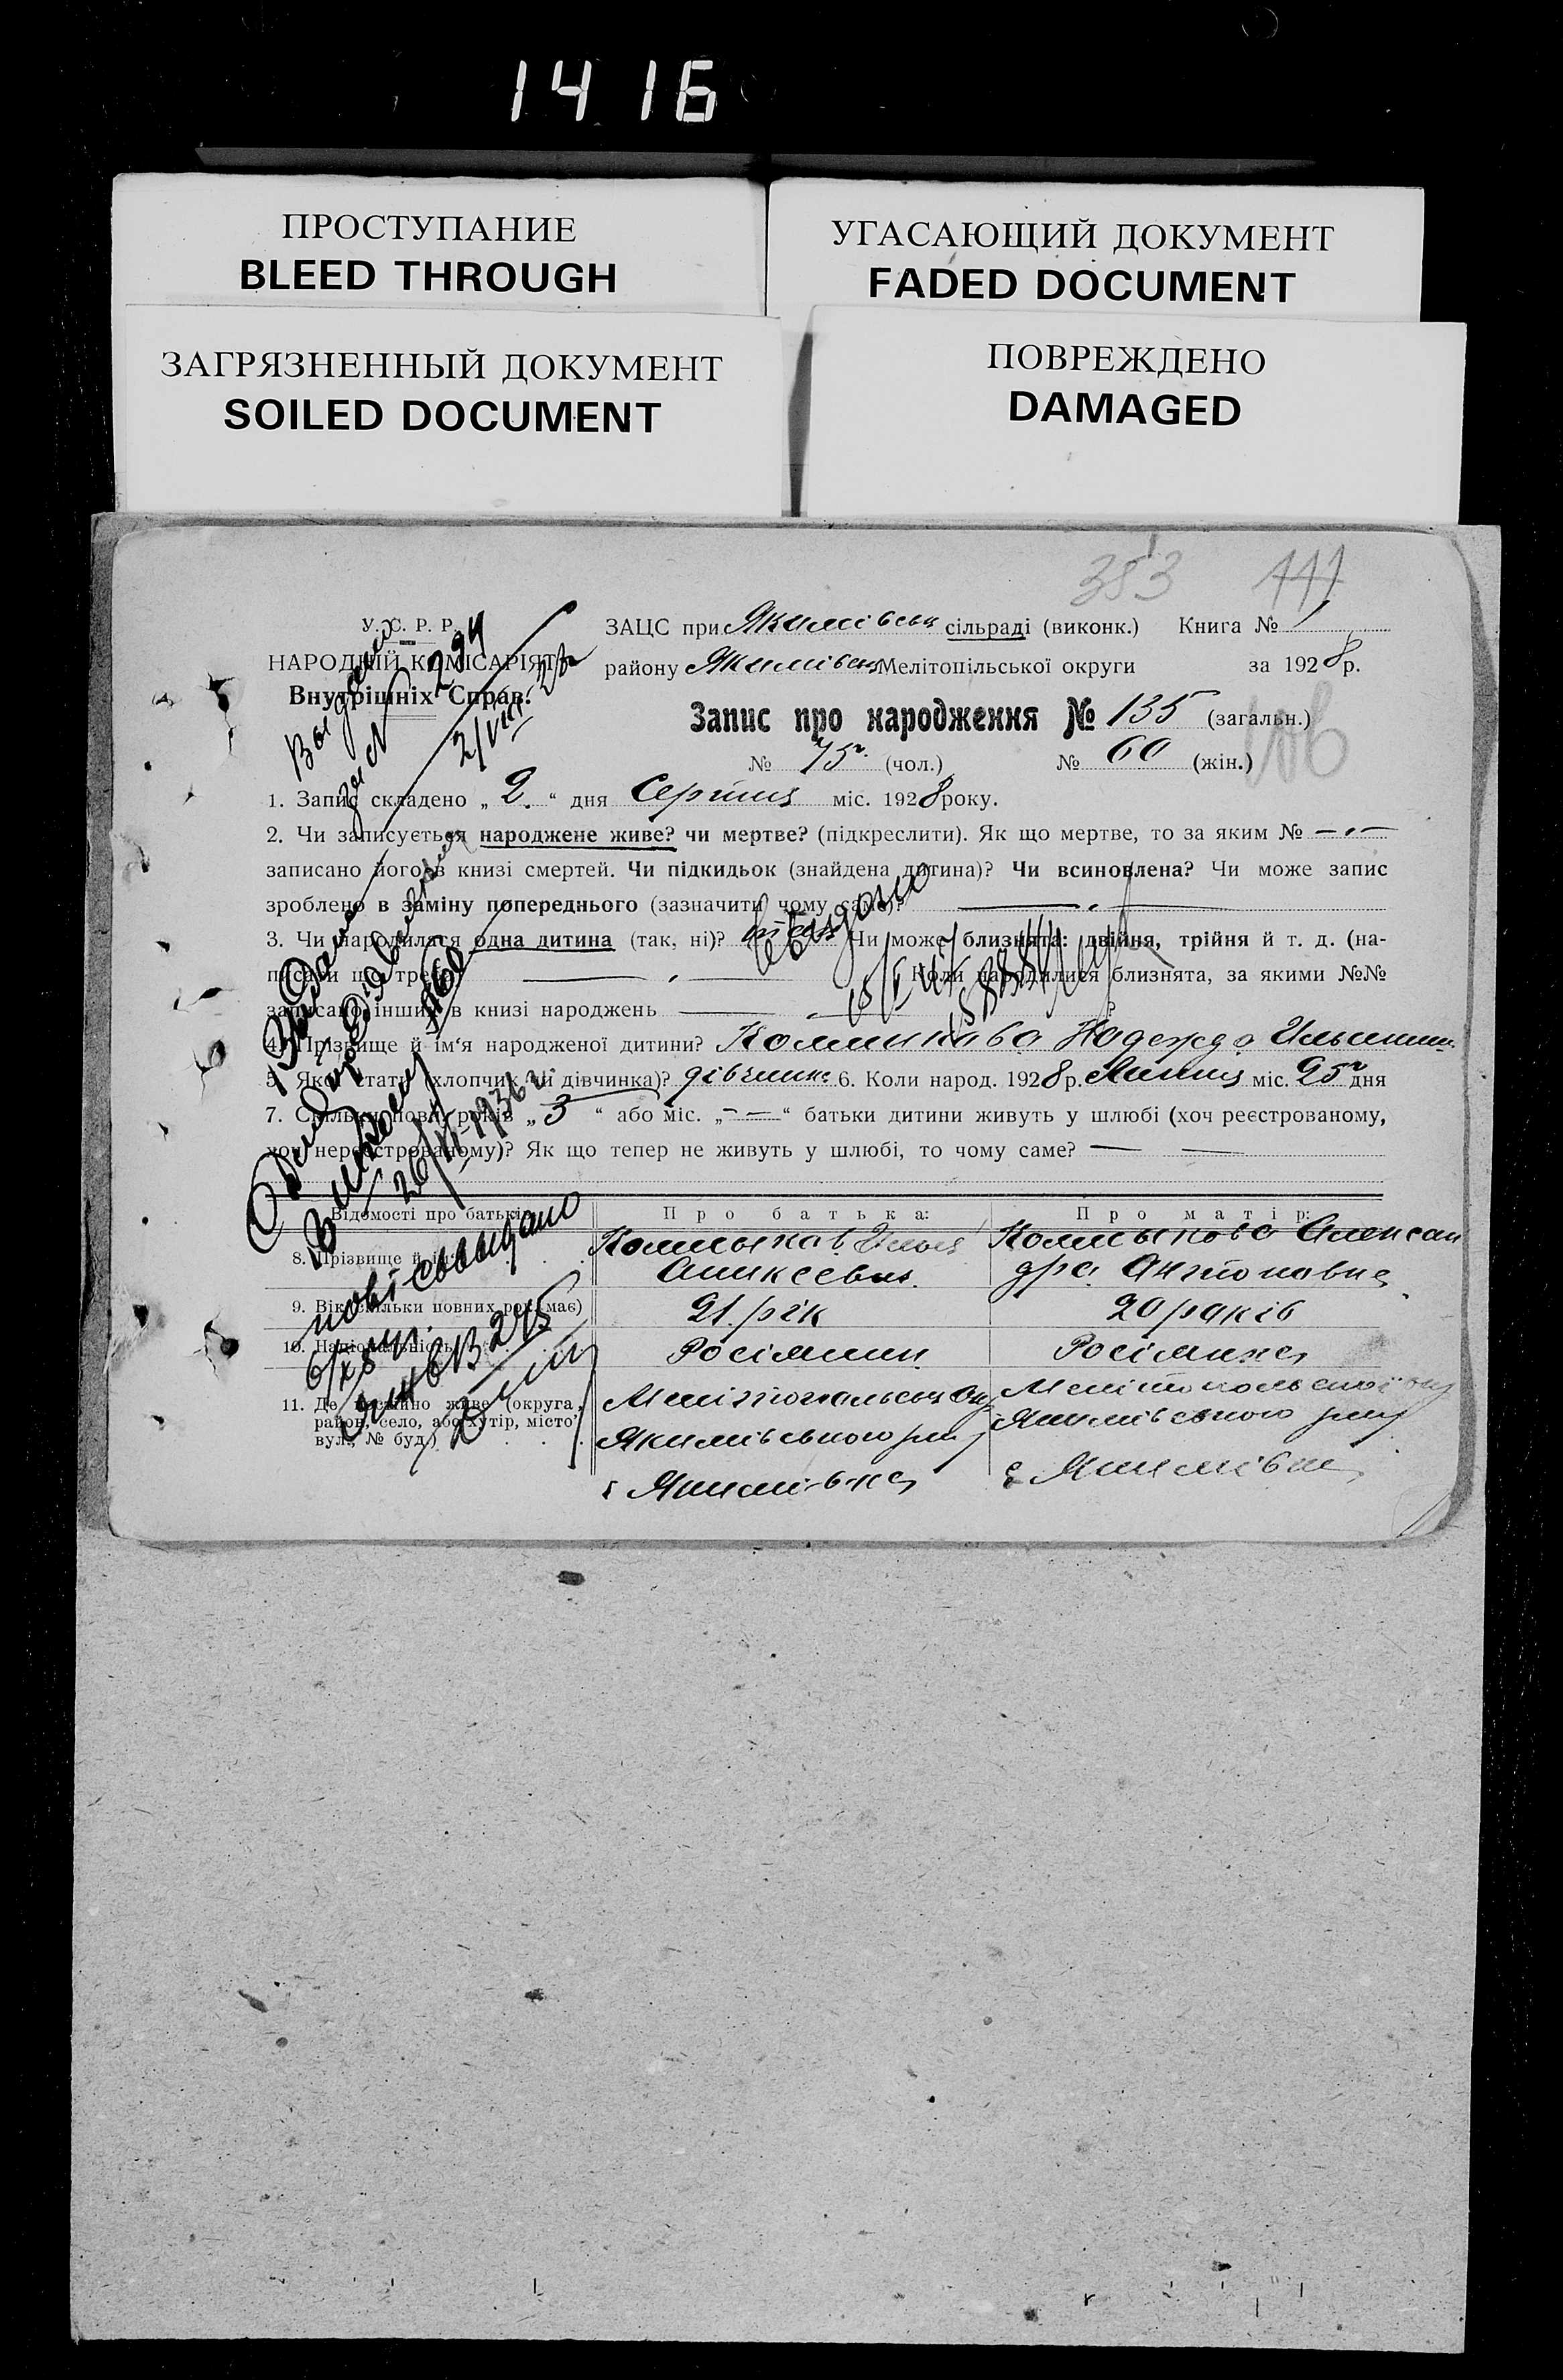 1416
ПРОСТУПАНИЕ
BLEED THROUGH
УГАСАЮЩИЙ ДОКУМЕНТ
FADED DOCUMENT
ЗАГРЯЗНЕННЫЙ ДОКУМЕНТ
SOILED DOCUMENT
ПОВРЕЖДЕНО
DAMAGED
353 111
У. С. Р. Р.
НАРОДНІЙ КОМІСАРІЯТ
Внутрішніх Справ.
ЗАЦС при Якимівськ сільраді (виконк.) Книга № 1
району Якимівськ Мелітопільської округи за 1928 р.
Запис про народження № 135 (загальн.)
№ 75 (чол.) № 60 (жін.)
106
1. Запис складено „ 2. “ дня Серпня міс. 1928 року.
2. Чи записується народжене живе? чи мертве? (підкреслити). Як що мертве, то за яким №
записано його в книзі смертей. Чи підкидьок (знайдена дитина)? Чи всиновлена? Чи може запис
зроблено в заміну попереднього (зазначити чому саме)?
3. Чи народилася одна дитина (так, ні)? Чи може близнята: двійня, трійня й т. д. (на-
писати що треба) Коли народилися близнята, за якими №№
записано інших в книзі народжень ?
4. Прізвище й ім‘я народженої дитини? Колмикова Надежда Ильинишна
5. Якої статі (хлопчик чи дівчинка)? дівчинка 6. Коли народ. 1928 р. Липня міс. 25 дня
7. Скільки повн. років „ 3 “ або міс. „ — “ батьки дитини живуть у шлюбі (хоч реєстрованому,
хоч нереєстрованому)? Як що тепер не живуть у шлюбі, то чому саме?
Відомості про батьків
Про батька:
Про матір:
8. Прізвище й ім‘я
Колмыков Илья
Аникеевич
Колмыкова Алексан
дра Антоновна
9. Вік (скільки повних рок. має)
21. рік
20 років
10. Національність
Росіянин
Росіянка
11. Де постійно живе (округа,
район, село, або хутір, місто
вул., № буд.)
Мелітопольськ Окр
Якимівського рай
с Якимівка
Мелітопольської окр
Якимівського рай
с Якимівка
Выдано
за № 294
2/VIII 28
Видано
26/XI-1936 г.
нові свид. видано